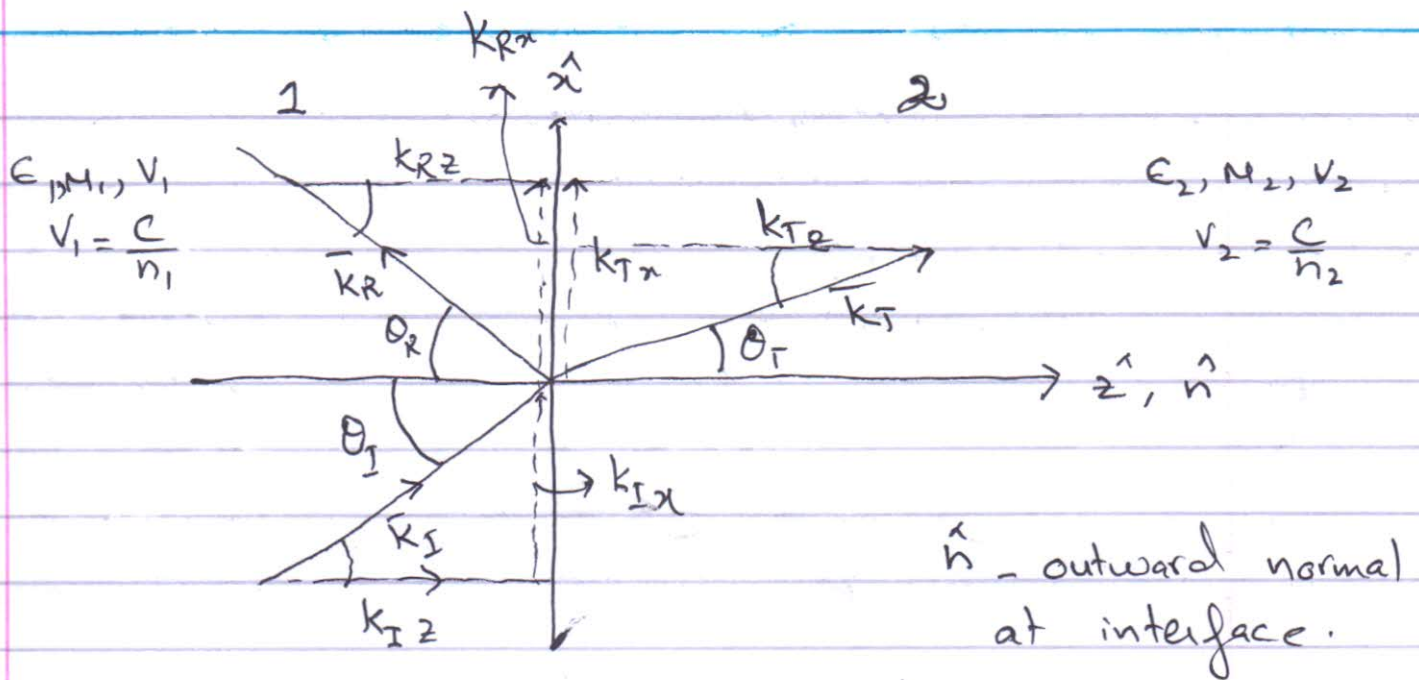 k_Rx
x̂
1
2
k_Rz
ε₁, μ₁, V₁
V₁ = C/n₁
ε₂, μ₂, V₂
V₂ = C/n₂
k_Tz
k_Tx
k̄_R
k̄_T
θ_R
θ_T
ẑ, n̂
θ_I
k_Ix
k̄_I
k_Iz
n̂ - outward normal
at interface.